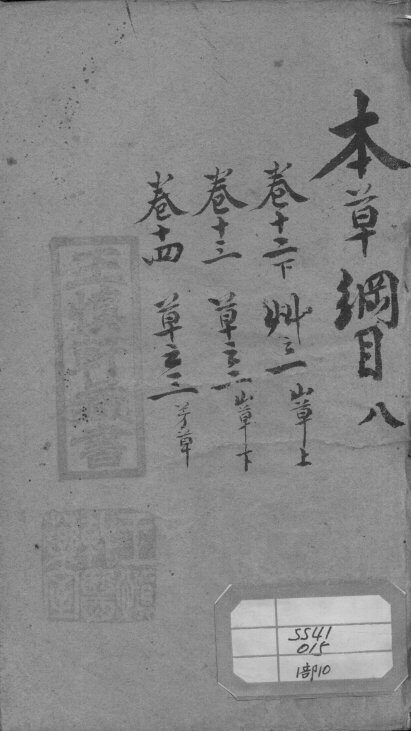 本草綱目 八
卷十二下 艸之一 山草上
卷十三 草之二 山草下
卷十四 草之三 芳草
SS41
015
1部10